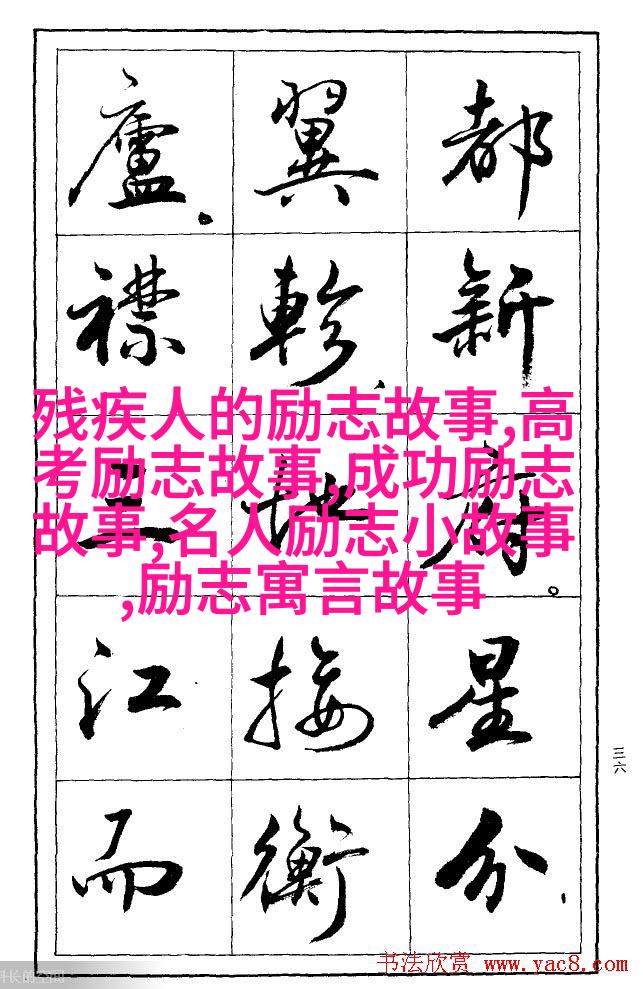 都新府星分
翼軫地接衡
廬襟三江而
残疾人的励志故事,高
考励志故事,成功励志
故事,名人励志小故事
,励志寓言故事
三六
书法欣赏 www.yac8.com
长的空间